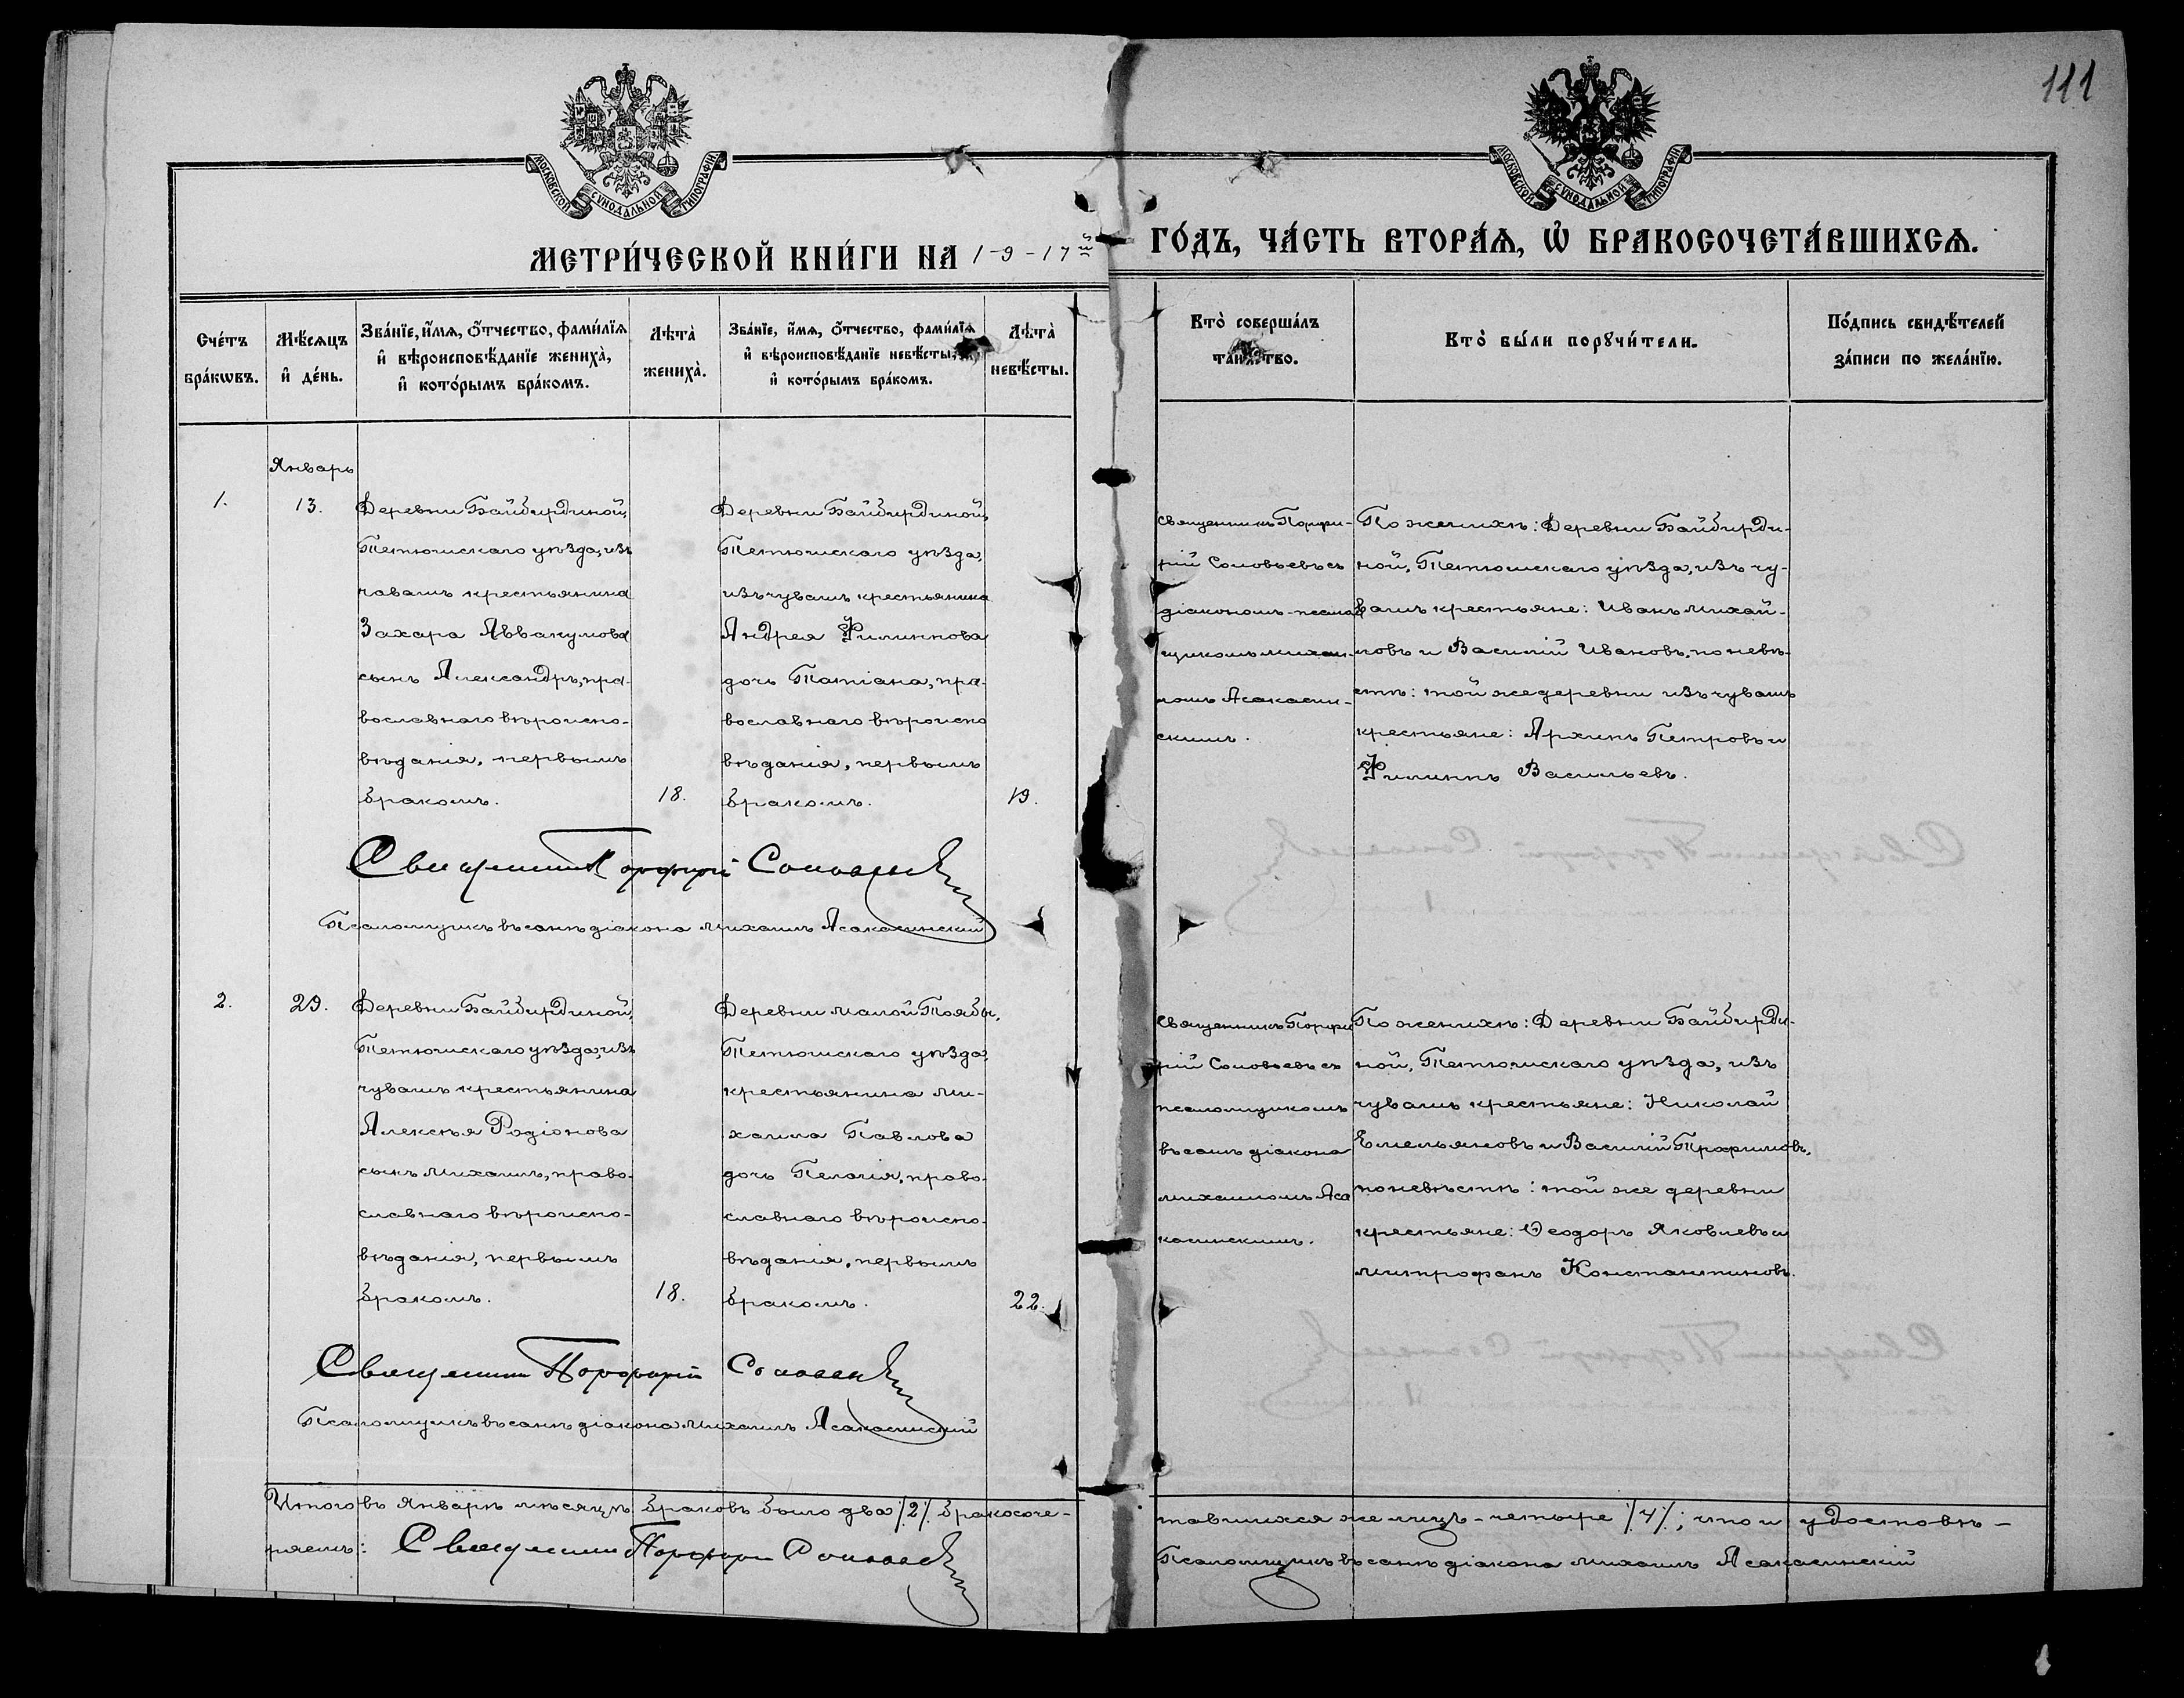 111
МОСКОВСКОЙ СѴНОДАЛЬНОЙ ТИПОГРАФІИ
МОСКОВСКОЙ СѴНОДАЛЬНОЙ ТИПОГРАФІИ
МЕТРИ́ЧЕСКОЙ КНИ́ГИ НА 1-9-17й ГО́ДЪ, ЧА́СТЬ ВТОРА́Ѧ, Ѡ҆ БРАКОСОЧЕТА́ВШИХСѦ.
Сче́тъ
бра́кѡвъ.
Мѣ́сѧцъ
и҆ де́нь.
Зва́нїе, и҆́мѧ, о҆́тчество, фами́лїѧ
и҆ вѣроисповѣ́данїе жениха̀,
и҆ кото́рымъ бра́комъ.
Лѣта̀
жениха̀.
Зва́нїе, и҆́мѧ, о҆́тчество, фами́лїѧ
и҆ вѣроисповѣ́данїе невѣ́сты,
и҆ кото́рымъ бра́комъ.
Лѣта̀
невѣ́сты.
Кто̀ соверша́лъ
та́инство.
Кто̀ бы́ли порꙋчи́тели.
По́дпись свидѣ́телей
за́писи по жела́нїю.
Январь
1.
13.
Деревни Байбирдиной,
Тетюшскаго уѣзда, изъ
чавашъ крестьянина
Захара Аввакумова
сынъ Александръ, пра-
вославнаго вѣроиспо-
вѣданія, первымъ
бракомъ.
18.
Деревни Байбирдиной,
Тетюшскаго уѣзда,
изъ чувашъ крестьянина
Андрея Филиппова
дочь Татіана, пра-
вославнаго вѣроиспо
вѣданія, первымъ
бракомъ.
19.
Священникъ Порфи-
рій Соловьевъ съ
діакономъ-псалом
щикомъ Михаи-
ломъ Асакасин-
скимъ.
По женихѣ: Деревни Байбирди-
ной, Тетюшскаго уѣзда, изъ чу-
вашъ крестьяне: Иванъ Михай-
ловъ и Василій Ивановъ, по невѣ-
стѣ: той же деревни изъ чувашъ
крестьяне: Архипъ Петровъ и
Филиппъ Васильевъ.
Священникъ Порфирій Соловьевъ
Псаломщикъ въ санѣ діакона Михаилъ Асакасинскій
2.
29.
Деревни Байбирдиной,
Тетюшскаго уѣзда, изъ
чувашъ крестьянина
Алексѣя Родіонова
сынъ Михаилъ, право-
славнаго вѣроиспо-
вѣданія, первымъ
бракомъ.
18.
Деревни Малой Тоябы,
Тетюшскаго уѣзда,
крестьянина Ми-
хаила Павлова
дочь Пелагія, право-
славнаго вѣроиспо-
вѣданія, первымъ
бракомъ.
22.
Священникъ Порфи
рій Соловьевъ съ
псаломщикомъ
въ санѣ діакона
Михаиломъ Аса
касинскимъ.
По женихѣ: Деревни Байбирди-
ной, Тетюшскаго уѣзда, изъ
чувашъ крестьяне: Николай
Емельяновъ и Василій Трофимовъ,
по невѣстѣ: той же деревни
крестьяне: Ѳеодоръ Яковлевъ и
Митрофанъ Константиновъ.
Священникъ Порфирій Соловьевъ
Псаломщикъ въ санѣ діакона Михаилъ Асакасинскій
Итого въ Январѣ мѣсяцѣ браковъ было два /2/. бракосоче-
тавшихся же лицъ - четыре /4/.; что и удостовѣ-
ряемъ: Священникъ Порфирій Соловьевъ
Псаломщикъ въ санѣ діакона Михаилъ Асакасинскій